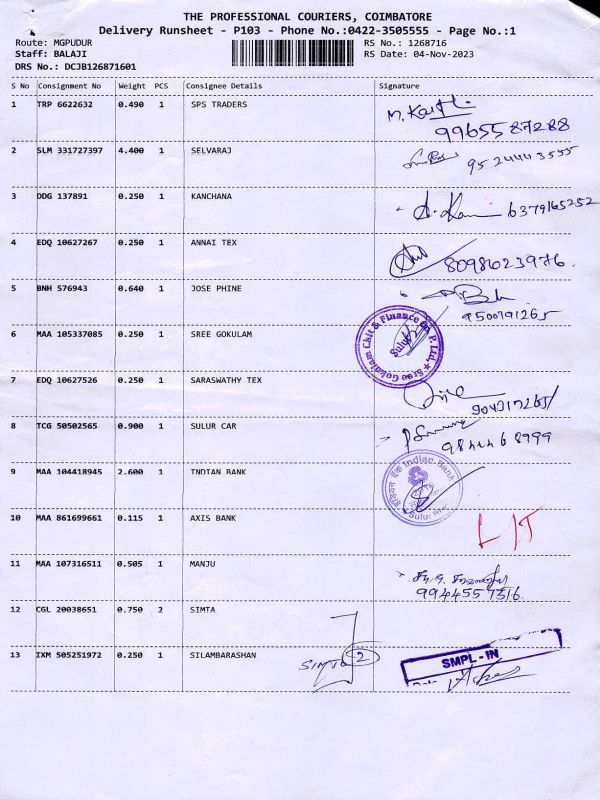 THE PROFESSIONAL COURIERS, COIMBATORE
Delivery Runsheet - P103 - Phone No.:0422-3505555 - Page No.:1
Route: MGPUDUR RS No.: 1268716
Staff: BALAJI RS Date: 04-Nov-2023
DRS No.: DCJB126871601
S No Consignment No Weight PCS Consignee Details Signature
1 TRP 6622632 0.490 1 SPS TRADERS M. Karthi
9965587288
2 SLM 331727397 4.400 1 SELVARAJ 9524443555
3 DDG 137891 0.250 1 KANCHANA 6379165252
4 EDQ 10627267 0.250 1 ANNAI TEX 8098623976.
5 BNH 576943 0.640 1 JOSE PHINE
9500791265
6 MAA 105337085 0.250 1 SREE GOKULAM Sree Gokulam Chit & Finance Co. P. Ltd. * Sulur
7 EDQ 10627526 0.250 1 SARASWATHY TEX
8 TCG 50502565 0.900 1 SULUR CAR
9 MAA 104418945 2.600 1 INDIAN BANK इंडियन बैंक Indian Bank
10 MAA 861699661 0.115 1 AXIS BANK
11 MAA 107316511 0.505 1 MANJU
9944557316.
12 CGL 20038651 0.750 2 SIMTA
13 IXM 505251972 0.250 1 SILAMBARASHAN SIMTA 2 SMPL-IN